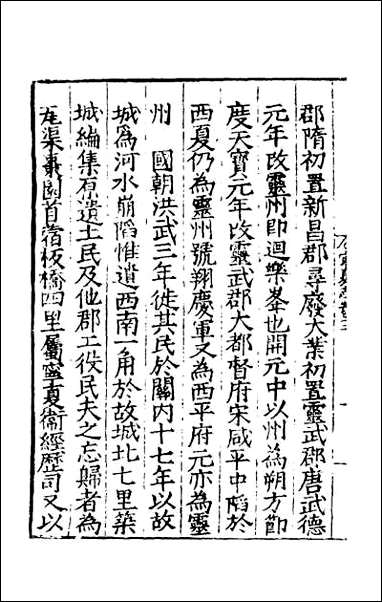 郡隋初置新昌郡尋廢大業初置靈武郡唐武德
元年改靈州即迴樂峯也開元中以州為朔方節
度天寶元年改靈武郡大都督府宋咸平中陷於
西夏仍為靈州號翔慶軍又為西平府元亦為靈
州 國朝洪武三年徙其民於關内十七年以故
城為河水崩陷惟遺西南一角於故城北七里築
城編集原遺土民及他郡工役民夫之忘歸者為
瓦渠棗園苜蓿板橋四里屬寧夏衛經歷司又以